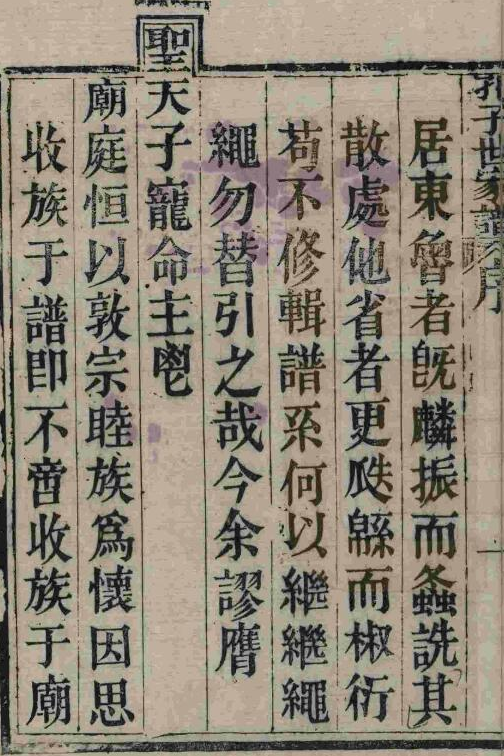 孔子世家譜序
居東魯者既麟振而螽詵其
散處他省者更瓞緜而椒衍
苟不修輯譜系何以繼繼繩
繩勿替引之哉今余謬膺
聖天子寵命主鬯
廟庭恒以敦宗睦族爲懷因思
收族于譜即不啻收族于廟